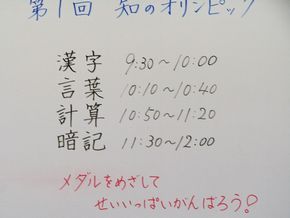 第1回 知のオリンピック
漢字 9:30〜10:00
言葉 10:10〜10:40
計算 10:50〜11:20
暗記 11:30〜12:00
メダルをめざして
せいいっぱいがんばろう!